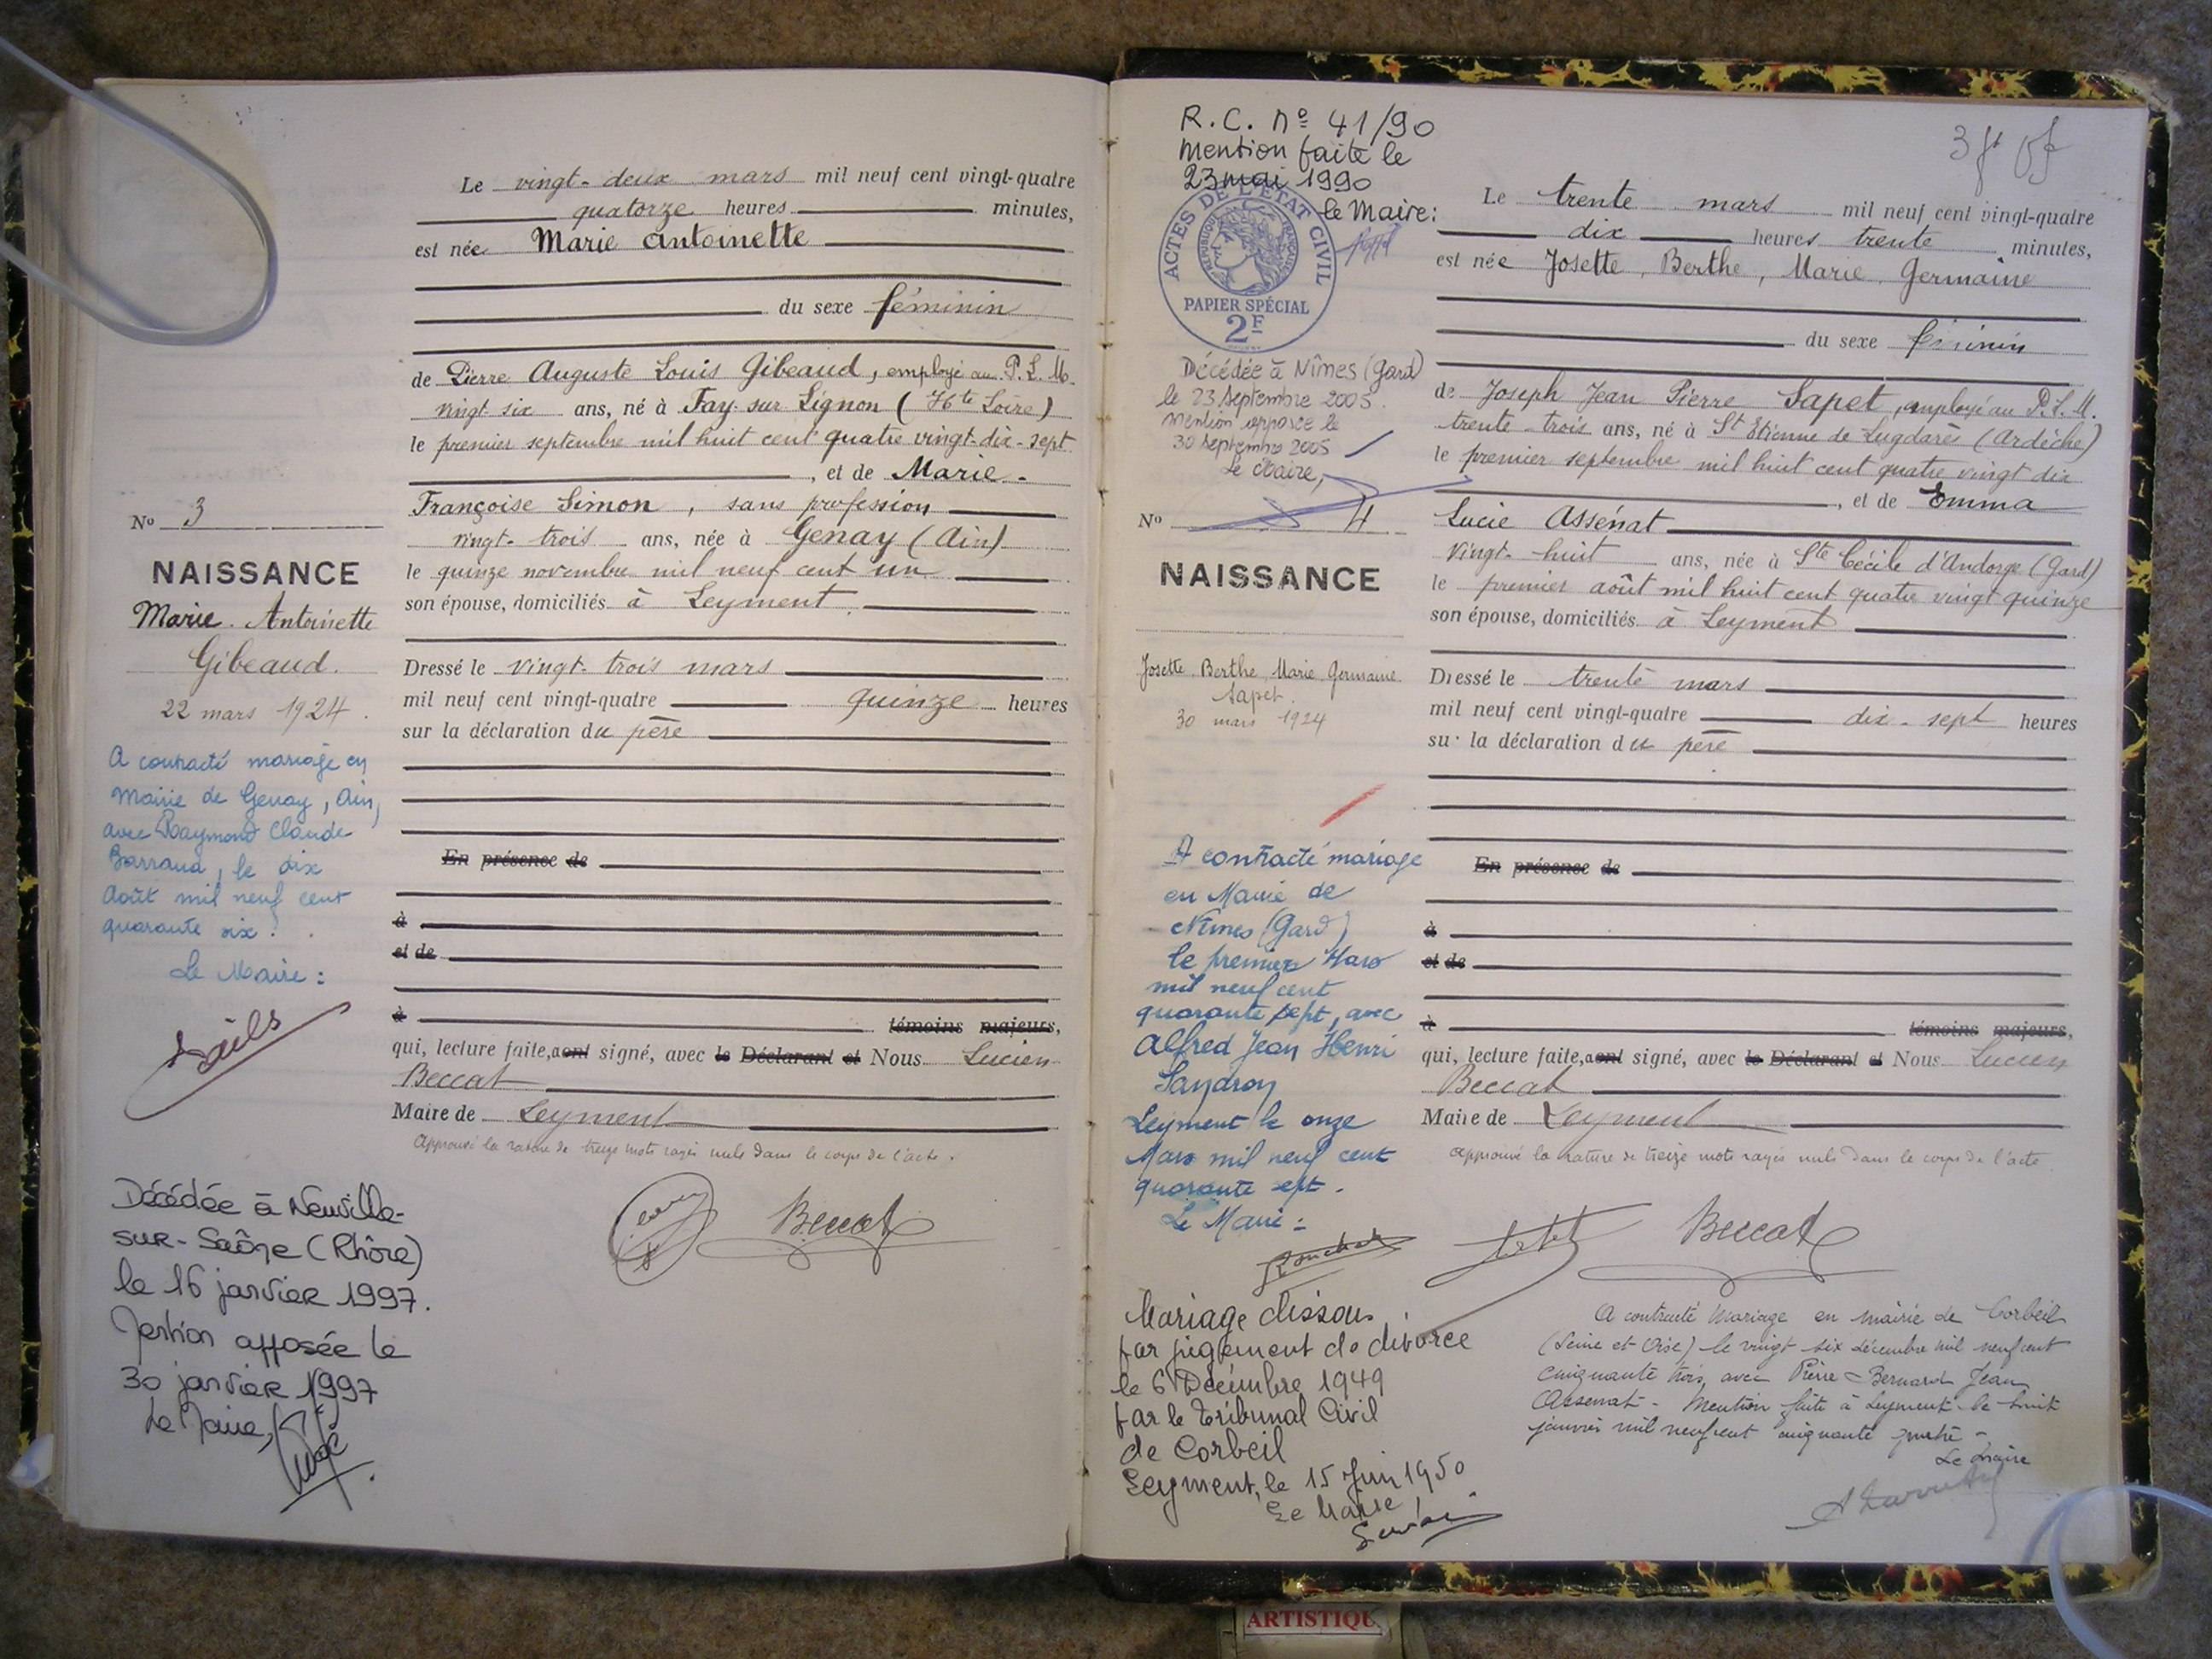 Le vingt-deux mars mil neuf cent vingt-quatre
quatorze heures minutes,
est née Marie Antoinette
du sexe féminin
de Pierre Auguste Louis Gibeaud, employé au P.L.M.
vingt six ans, né à Fay sur Lignon (Hte Loire)
le premier septembre mil huit cent quatre vingt-dix-sept
, et de Marie-
Françoise Simon, sans profession
vingt-trois ans, née à Genay (Ain)
le quinze novembre mil neuf cent un
son épouse, domiciliés à Leyment.
Dressé le vingt-trois mars
mil neuf cent vingt-quatre quinze heures
sur la déclaration du père
En présence de
à
et de
à témoins majeurs,
qui, lecture faite, a ont signé, avec le Déclarant et Nous Lucien
Beccat
Maire de Leyment
Approuvé la rature de treize mots rayés nuls dans le corps de l'acte.
Beccat
No 3
NAISSANCE
Marie-Antoinette
Gibeaud.
22 mars 1924.
A contracté mariage en
Mairie de Genay, Ain,
avec Raymond Claude
Barraud, le dix
Août mil neuf cent
quarante six.
Le Maire :
Décédée à Neuville-
sur-Saône (Rhône)
le 16 janvier 1997.
Mention apposée le
30 janvier 1997
Le Maire,
3
R.C. nº 41/90
Mention faite le
23 mai 1990
le Maire :
ACTES DE L'ÉTAT CIVIL
RÉPUBLIQUE FRANÇAISE
PAPIER SPÉCIAL
2F
Décédée à Nîmes (Gard)
le 23 septembre 2005.
Mention apposée le
30 septembre 2005
Le Maire,
No 4
NAISSANCE
Josette, Berthe, Marie, Germaine
Sapet.
30 mars 1924
A contracté mariage
en Mairie de
Nîmes (Gard)
le premier Mars
mil neuf cent
quarante sept, avec
Alfred Jean Henri
Leyment le onze
Mars mil neuf cent
quarante sept.
Le Maire :
Mariage dissous
par jugement de divorce
le 6 Décembre 1949
par le Tribunal Civil
de Corbeil
Leyment, le 15 Juin 1950
Le Maire,
Le trente mars mil neuf cent vingt-quatre
dix heures trente minutes,
est née Josette, Berthe, Marie, Germaine
du sexe féminin
de Joseph Jean Pierre Sapet, employé au P.L.M.
trente-trois ans, né à St Etienne de Lugdarès (Ardèche)
le premier septembre mil huit cent quatre vingt dix
, et de Emma
Lucie Assénat
vingt-huit ans, née à Ste Cécile d'Andorge (Gard)
le premier août mil huit cent quatre vingt quinze
son épouse, domiciliés à Leyment
Dressé le trente mars
mil neuf cent vingt-quatre dix-sept heures
sur la déclaration du père
En présence de
à
et de
à témoins majeurs,
qui, lecture faite, a ont signé, avec le Déclarant et Nous Lucien
Beccat
Maire de Leyment
Approuvé la rature de treize mots rayés nuls dans le corps de l'acte
Beccat
A contracté mariage en mairie de Corbeil
(Seine et Oise) le vingt six décembre mil neuf cent
cinquante trois, avec Pierre-Bernard Jean
Assenat - Mention faite à Leyment le huit
janvier mil neuf cent cinquante quatre -
Le Maire
ARTISTIQU